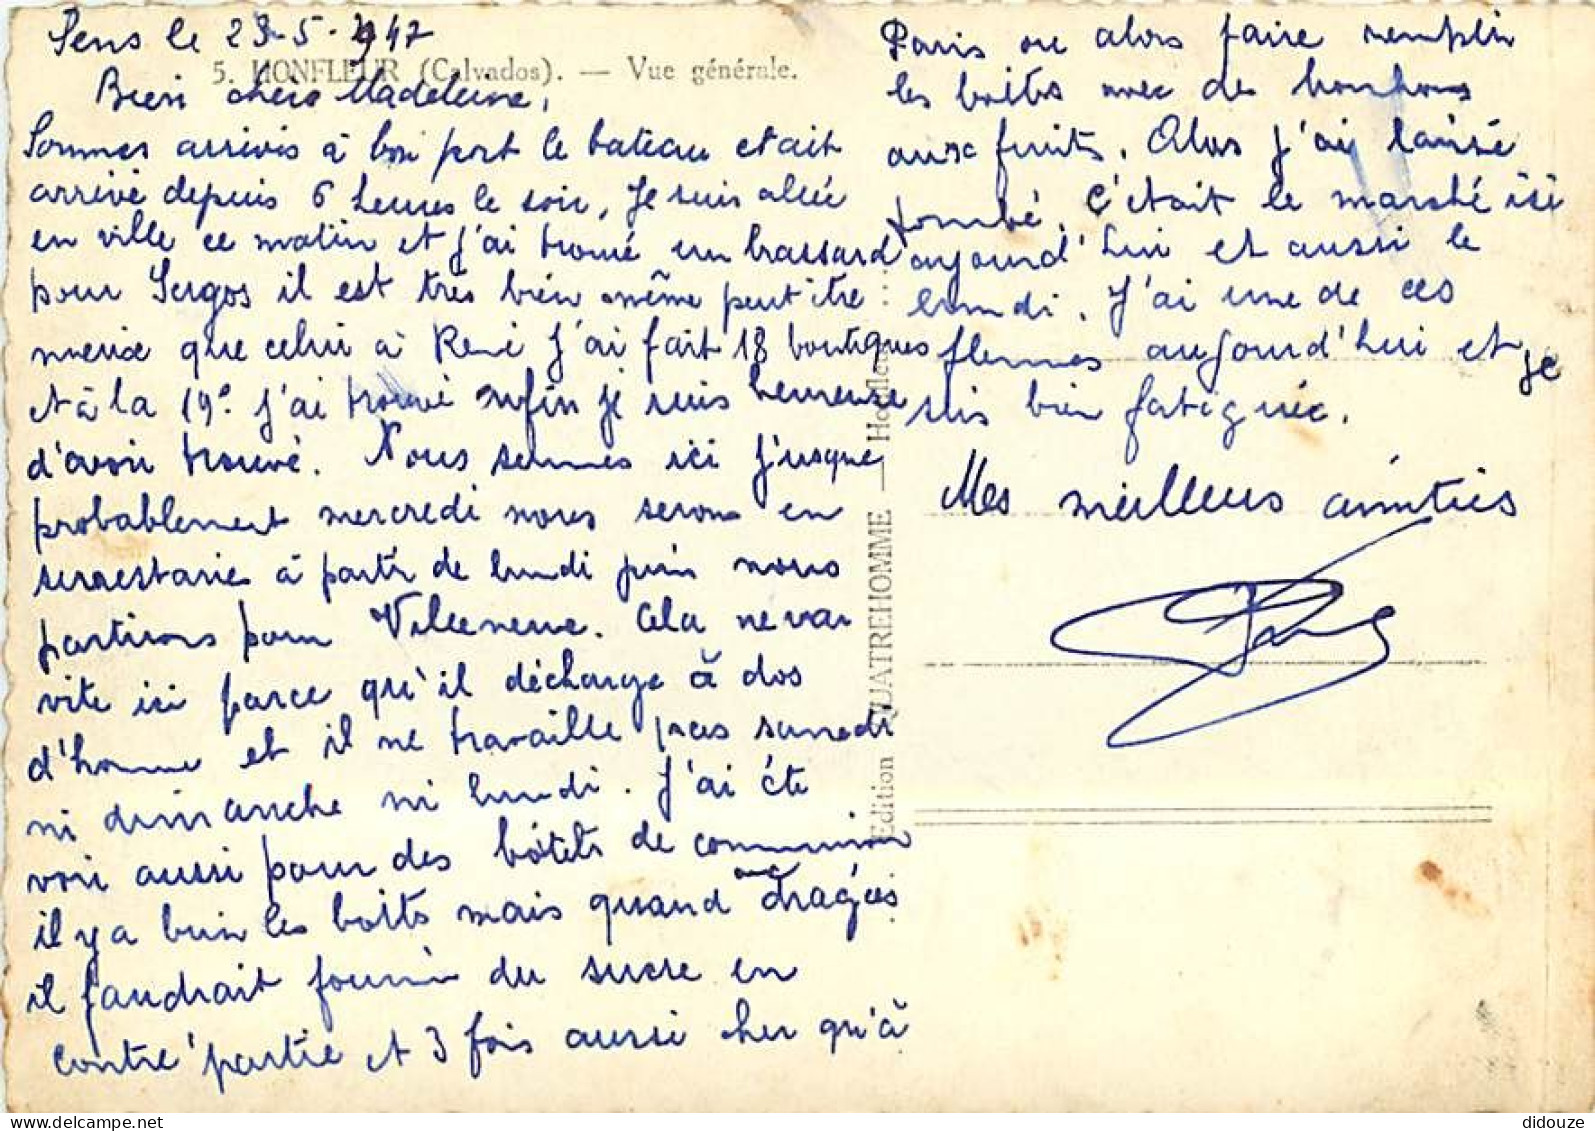 Sens le 23-5-1947
5. HONFLEUR (Calvados). — Vue générale.
Bien chère Madeleine,
Sommes arrivés à bon port le bateau etait
arrivé depuis 6 heures le soir, Je suis allée
en ville ce matin et j'ai trouvé un brassard
pour Sergos il est très bien même peut itre
mieux que celui à René j'ai fait 18 boutiques
et à la 19e j'ai trouvé enfin je suis heureuse
d'avoir trouvé. Nous sommes ici j'usque
probablement mercredi nous serons en
à partir de lundi juin nous
partirons pour Villeneuve. Cela ne va
vite ici parce qu'il décharge à dos
d'homme et il ne travaille pas samedi
ni dimanche ni lundi. J'ai éte
voir aussi pour des boites de communion
il y a bien les boites mais quand avec dragées
il faudrait fournir du sucre en
contre partie et 3 fois aussi cher qu'à
Paris ou alors faire remplir
les boites avec des bonbons
aux fruits. Alors j'ai laissé
tombé. C'était le marché ici
aujourd'hui et aussi le
lundi. J'ai une de ces
flemmes aujourd'hui et je
suis bien fatiguée.
Mes meilleurs amitiés
Edition QUATREHOMME — Honfleur
© delcampe.net
didouze